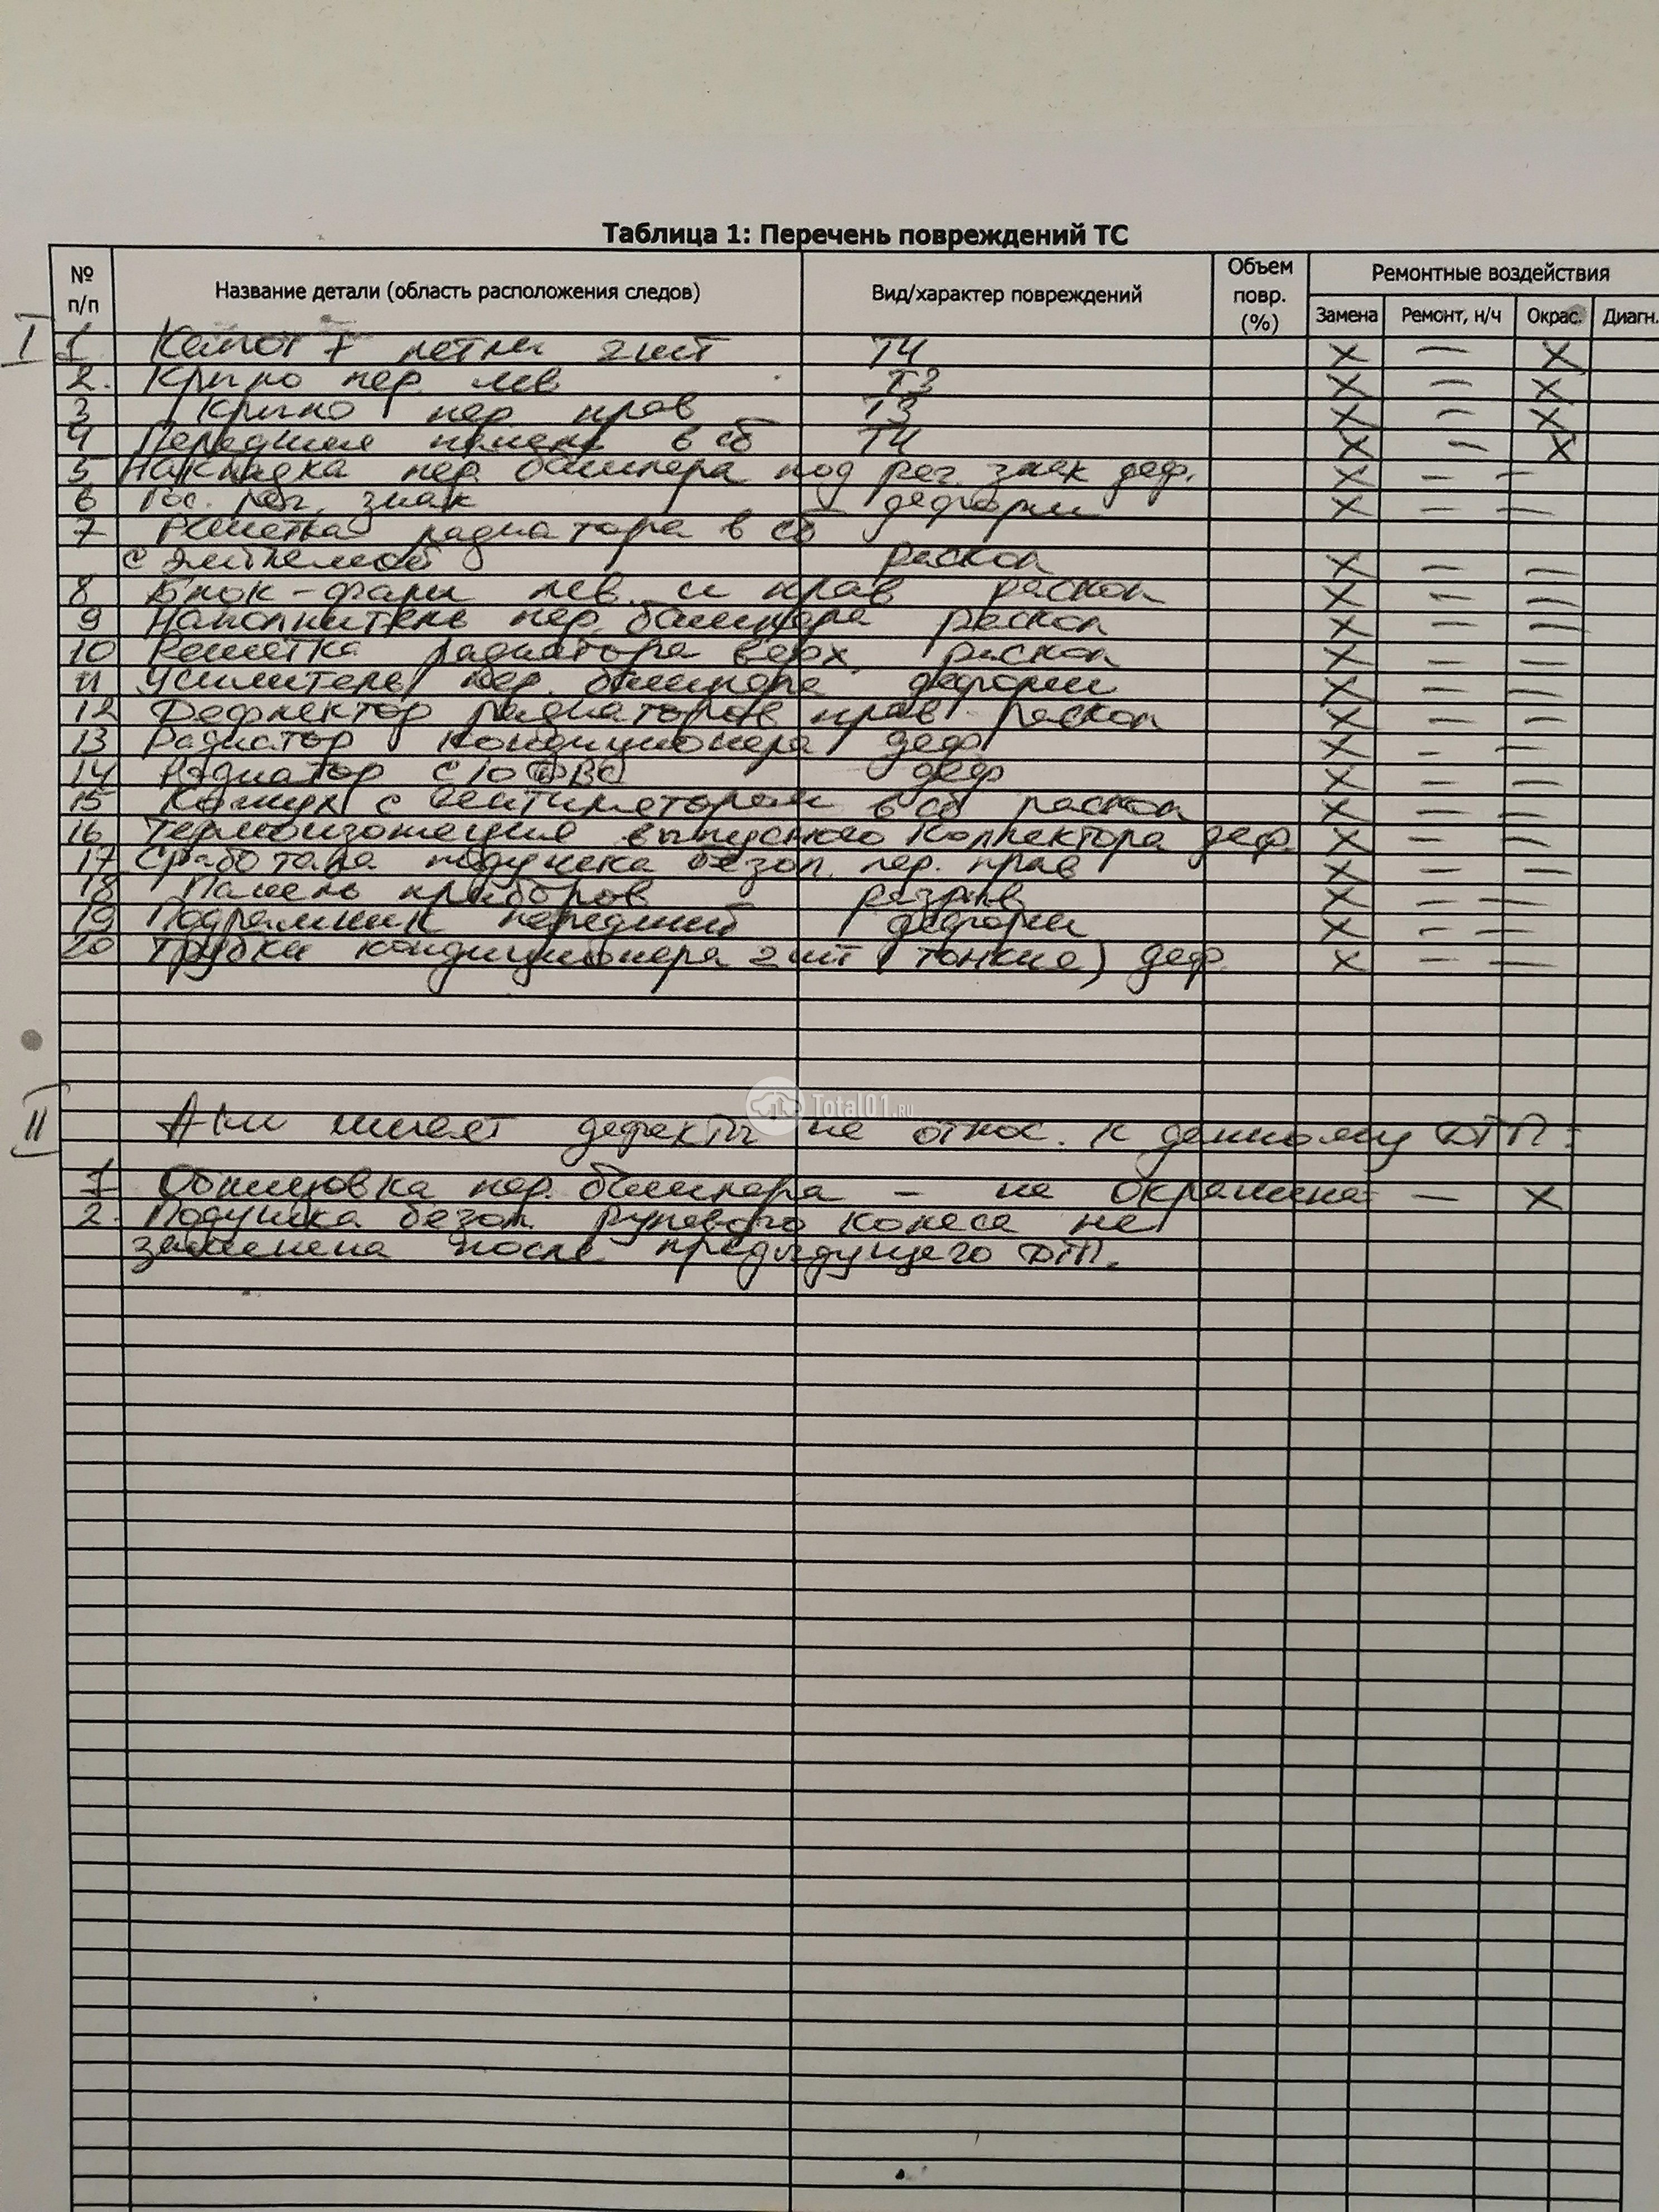 Таблица 1: Перечень повреждений ТС
№ п/п Название детали (область расположения следов) Вид/характер повреждений Объем повр. (%) Ремонтные воздействия
Замена Ремонт, н/ч Окрас. Диагн.
I 1 Капот + петли 2 шт Т4 X — X
2. Крыло пер. лев Т3 X — X
3 Крыло пер прав Т3 X — X
4 Передняя панель в сб Т4 X — X
5 Накладка пер. бампера под рег. знак деф. X — —
6 Гос. рег. знак деформ X — —
7 Решетка радиатора в сб
с эмблемой раскол X — —
8 Блок-фары лев. и прав раскол X — —
9 Наполнитель пер. бампера раскол X — —
10 Решетка радиатора верх. раскол X — —
11 Усилитель пер. бампера деформ X — —
12 Дефлектор радиаторов прав раскол X — —
13 Радиатор кондиционера деф X — —
14 Радиатор СО ДВС деф X — —
15 Кожух с вентилятором в сб раскол X — —
16 Термоизоляция выпускного коллектора деф. X — —
17 Сработала подушка безоп. пер. прав X — —
18 Панель приборов разрыв X — —
19 Подрамник передний деформ X — —
20 Трубки кондиционера 2 шт (тонкие) деф. X — —
Total01.RU
II А/м имеет дефекты не относ. к данному ДТП:
1 Облицовка пер. бампера — не окрашена — X
2. Подушка безоп. рулевого колеса не
заменена после предыдущего ДТП.